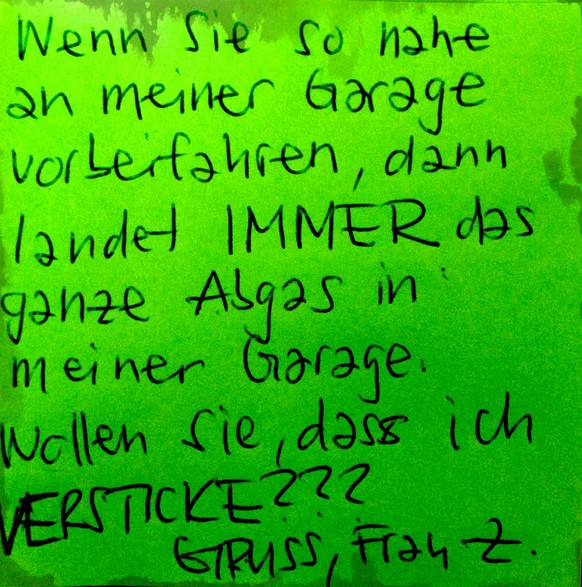 Wenn Sie so nahe
an meiner Garage
vorbeifahren, dann
landet IMMER das
ganze Abgas in
meiner Garage.
Wollen Sie, dass ich
VERSTICKE???
GRUSS, Frau Z.